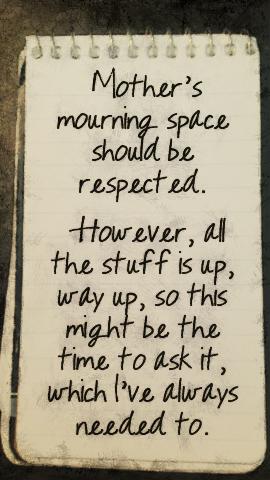 Mother's
mourning space
should be
respected.
However, all
the stuff is up,
way up, so this
might be the
time to ask it,
which I've always
needed to.